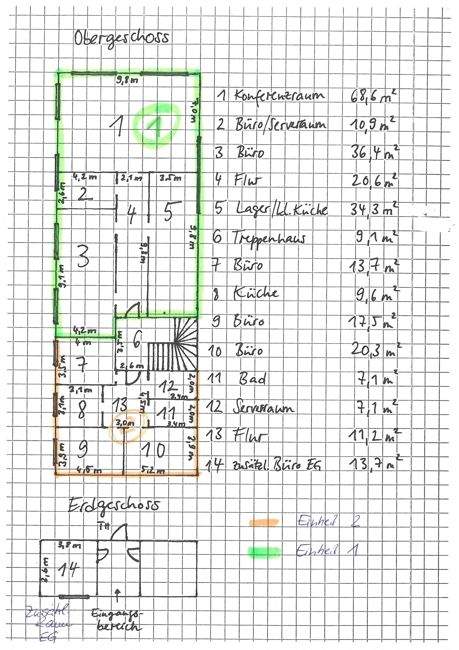 Obergeschoss
9,8m
1
1
7,0m
4,2m
2,1m
3,5m
2,6m
2
4
5
9,8m
9,8m
3
9,1m
4,2m
6
4m
3,5m
7
2,6m
2,0m
2,1m
12
3,4m
3,1m
8
13
4,5m
11
2,0m
3,0m
3,4m
2
3,9m
9
10
2,9m
4,5m
5,2m
1 Konferenzraum 68,6 m²
2 Büro/Serverraum 10,9 m²
3 Büro 36,4 m²
4 Flur 20,6 m²
5 Lager/kl. Küche 34,3 m²
6 Treppenhaus 9,1 m²
7 Büro 13,7 m²
8 Küche 9,6 m²
9 Büro 17,5 m²
10 Büro 20,3 m²
11 Bad 7,1 m²
12 Serverraum 7,1 m²
13 Flur 11,2 m²
14 zusätzl. Büro EG 13,7 m²
Erdgeschoss
3,8m
3,6m
14
Eingangs-
bereich
Zusätzl.
Raum
EG
Einheit 2
Einheit 1